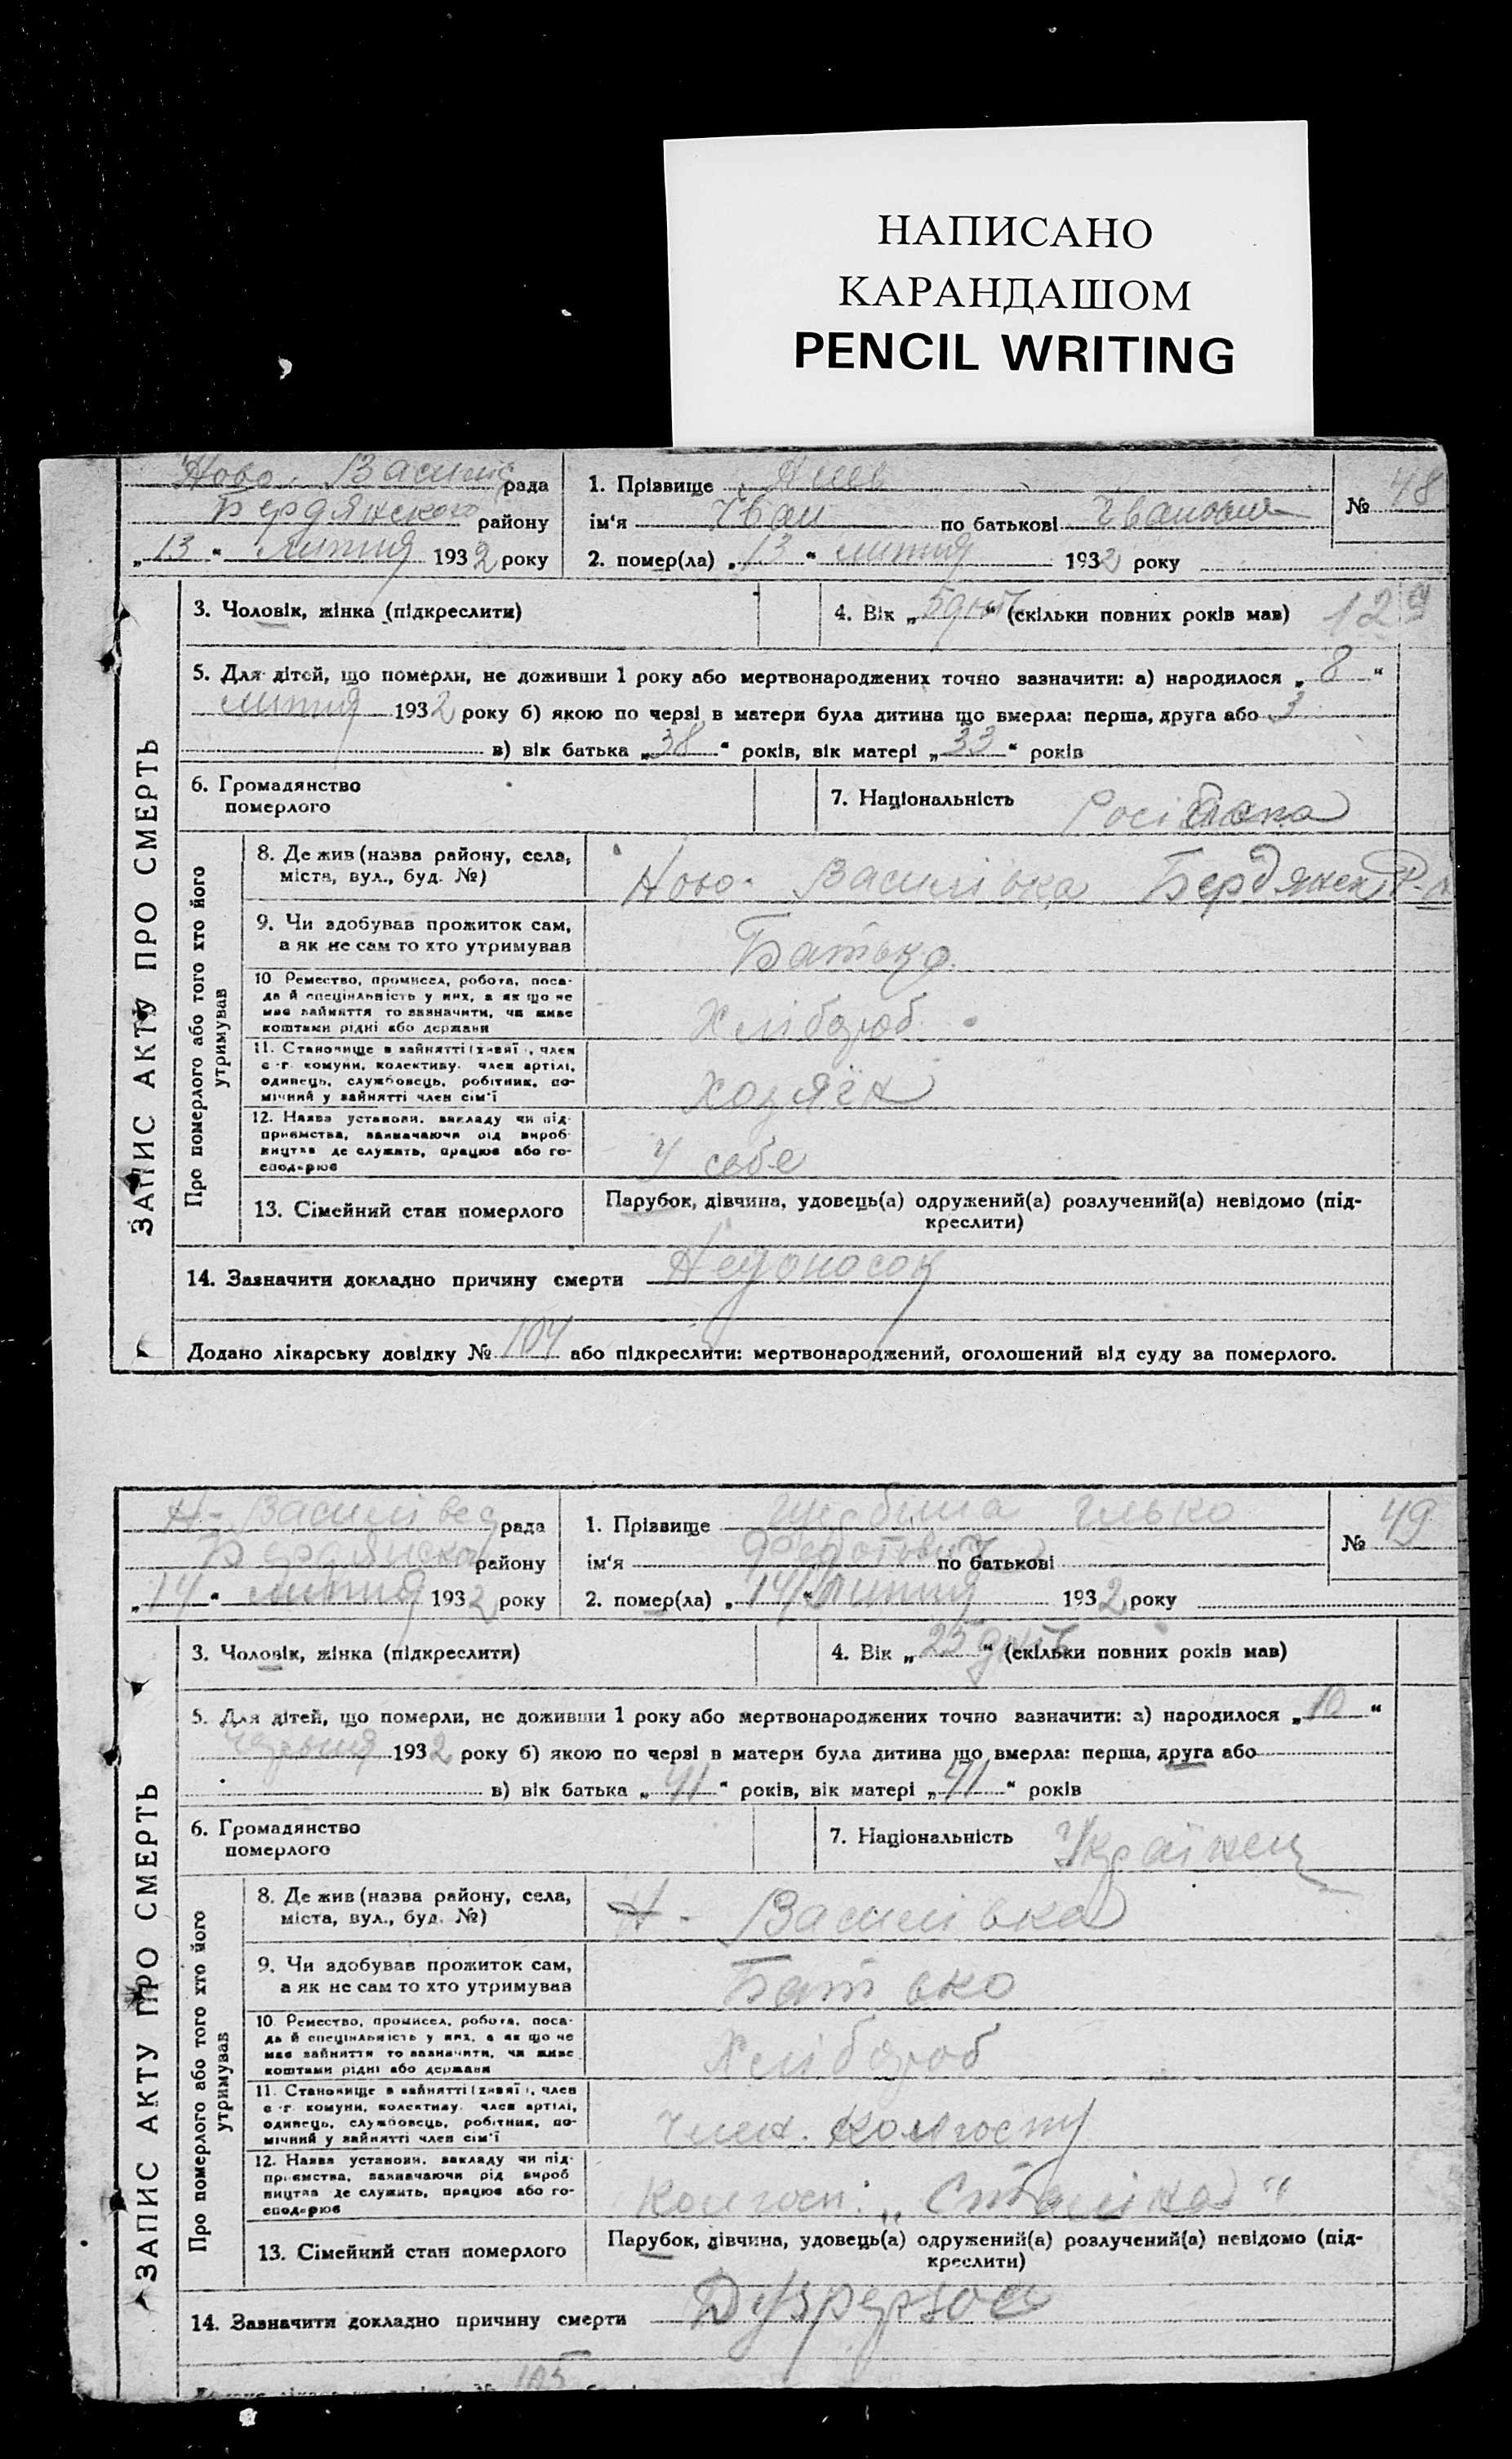 НАПИСАНО
КАРАНДАШОМ
PENCIL WRITING
Ново Василів рада
Бердянского району
„13“ липня 1932 року
1. Прізвище
ім‘я Іван по батькові
2. помер(ла) „13“ липня 1932 року
№ 48
3. Чоловік, жінка (підкреслити)
4. Вік „5 дній“ (скільки повних років мав)
129
5. Для дітей, що померли, не доживши 1 року або мертвонароджених точно зазначити: а) народилося „8“
липня 1932 року б) якою по черзі в матери була дитина що вмерла: перша, друга або 3
в) вік батька „38“ років, вік матері „33“ років
6. Громадянство
померлого
7. Національність
ЗАПИС АКТУ ПРО СМЕРТЬ
Про померлого або того хто його
утримував
8. Де жив (назва району, села,
міста, вул., буд. №)
Ново- Василівка Бердянск Р-н
9. Чи здобував прожиток сам,
а як не сам то хто утримував
Батько
10 Ремество, промисел, робота, поса-
да й спеціяльність у них, а як що не
має зайняття то зазначити, чи живе
коштами рідні або держави
Хлібороб
11. Становище в зайнятті (хазяї, член
с-г. комуни, колективу. член артілі,
одинець, службовець, робітник, по-
мічний у зайнятті член сім‘ї
Хозяїн
12. Назва установи, закладу чи під-
приємства, зазначаючи рід вироб-
ництва де служить, працює або го-
сподарює
У себе
13. Сімейний стан померлого
Парубок, дівчина, удовець(а) одружений(а) розлучений(а) невідомо (під-
креслити)
14. Зазначити докладно причину смерти Недоносок
Додано лікарську довідку № 104 або підкреслити: мертвонароджений, оголошений від суду за померлого.
Н- Василівс рада
Бердянска району
„14“ липня 1932 року
1. Прізвище Ілько
ім‘я Федотович по батькові
2. помер(ла) „14“ липня 1932 року
№ 49
3. Чоловік, жінка (підкреслити)
4. Вік „25 дній“ (скільки повних років мав)
5. Для дітей, що померли, не доживши 1 року або мертвонароджених точно зазначити: а) народилося „10“
червня 1932 року б) якою по черзі в матери була дитина що вмерла: перша, друга або
в) вік батька „41“ років, вік матері „41“ років
6. Громадянство
померлого
7. Національність Українец
ЗАПИС АКТУ ПРО СМЕРТЬ
Про померлого або того хто його
утримував
8. Де жив (назва району, села,
міста, вул., буд. №)
Н- Василівка
9. Чи здобував прожиток сам,
а як не сам то хто утримував
Батько
10. Ремество, промисел, робота, поса-
да й спеціяльність у них, а як що не
має зайняття то зазначити, чи живе
коштами рідні або держави
Хлібороб
11. Становище в зайнятті (хазяї, член
с-г. комуни, колективу. член артілі,
одинець, службовець, робітник, по-
мічний у зайнятті член сім‘ї
Член. колгоспу
12. Назва установи, закладу чи під-
приємства, зазначаючи рід вироб
ництва де служить, працює або го-
сподарює
Колгосп: „Сталіна“
13. Сімейний стан померлого
Парубок, дівчина, удовець(а) одружений(а) розлучений(а) невідомо (під-
креслити)
14. Зазначити докладно причину смерти
105